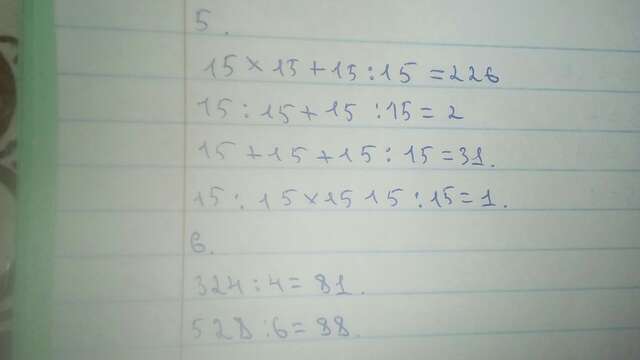 5.
15 × 15 + 15 : 15 = 226
15 : 15 + 15 : 15 = 2
15 + 15 + 15 : 15 = 31.
15 : 15 × 15 15 : 15 = 1.
6.
324 : 4 = 81.
528 : 6 = 88.